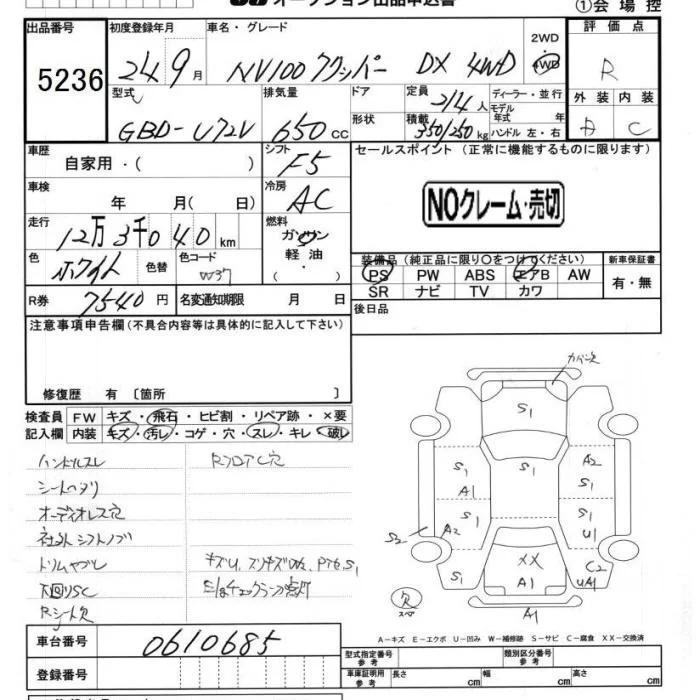 オークション出品申込書 ①会場控
出品番号 5236
初度登録年月 24 9月
車名・グレード NV100クリッパー DX 4WD
2WD 4WD
評価点 R
外装 内装 C
型式 GBD-U72V
排気量 650 CC
ドア 形状
定員 2/4人
積載 350/250 kg
ディーラー・並行
モデル年式 年
ハンドル 左・右
車歴 自家用・( )
シフト F5
セールスポイント(正常に機能するものに限ります)
NOクレーム・売切
車検 年 月( 日)
冷房 AC
走行 12万3千040km
燃料 ガソリン 軽油 ・
色 ホワイト 色替 色コード W37
装備品(純正品に限り○をつけてください)
新車保証書
PS PW ABS エアB AW
SR ナビ TV カワ
有・無
R券 7540円 名変通知期限 月 日
後日品
注意事項申告欄(不具合内容等は具体的に記入して下さい)
修復歴 有〔箇所 〕
検査員 FW キズ・飛石・ヒビ割・リペア跡・×要
記入欄 内装 キズ・汚レ・コゲ・穴・スレ・キレ・破レ
ハンドルスレ RフロアC穴
シートヘタリ
オーディオレス穴
社外シフトノブ
ドリムヤブレ
下廻りSC エンジンチェックランプ点灯
Rシート欠
カバー欠
S1
S1 S1 A2
A1 S1
S1 S1
S2 A2 U1
XX C2
S1 A1 UA1
欠 スペア A1
A-キズ E-エクボ U-凹み W-補修跡 S-サビ C-腐食 XX-交換済
車台番号 0610685
型式指定番号 参考 類別区分番号 参考
登録番号
車庫証明用 参考 長さ cm 幅 cm 高さ cm